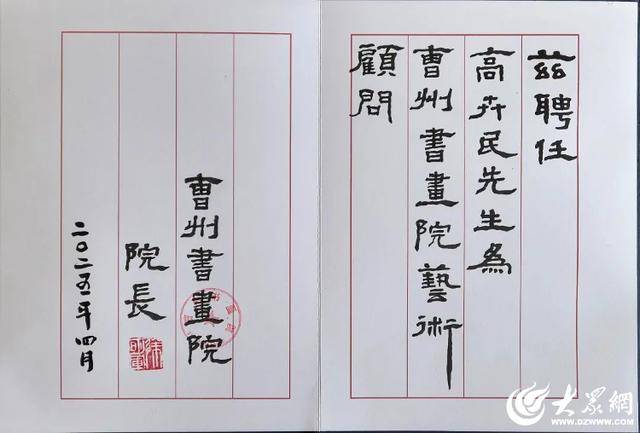 兹聘任
高卉民先生為
曹州書畫院藝術
顧問
曹州書畫院
院長
二〇二五年四月
大眾網
www.dzwww.com